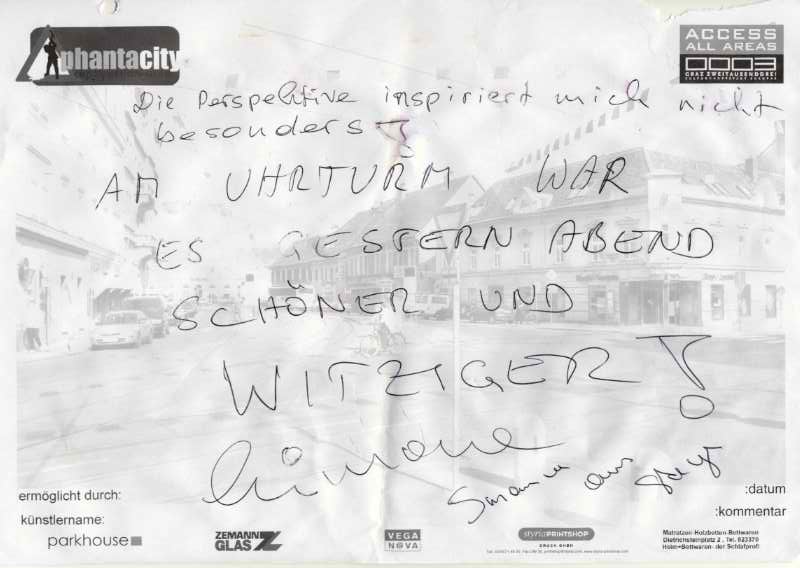 phantacity
ACCESS
ALL AREAS
0003
GRAZ ZWEITAUSENDDREI
Die Perspektive inspiriert mich nicht
besonders!
AM UHRTURM WAR
ES GESTERN ABEND
SCHÖNER UND
WITZIGER!
Simone
aus
ermöglicht durch:
:datum
künstlername:
:kommentar
parkhouse
ZEMANN
GLAS
VEGA
NOVA
styriaPRINTSHOP
DRUCK GMBH
Matratzen·Holzbetten·Bettwaren
Dietrichsteinplatz 2 , Tel. 823370
Holm+Bettwaren- der Schlafprofi